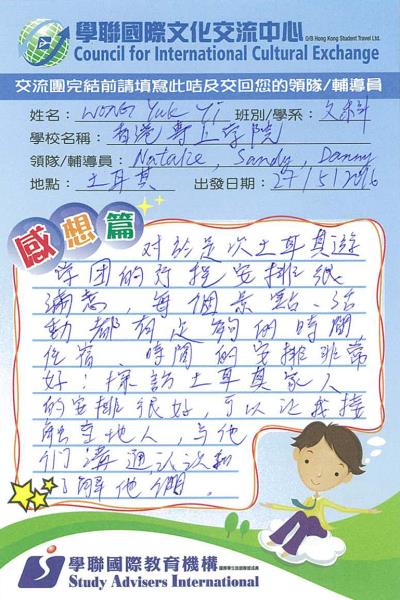 學聯國際文化交流中心
O/B Hong Kong Student Travel Ltd.
Council for International Cultural Exchange
交流團完結前請填寫此咭及交回您的領隊/輔導員
姓名：WONG Yuk Yi 班別/學系：文
學校名稱：香港專上学院
領隊/輔導員：Natalie, Sandy, Danny
地點：土耳其 出發日期：27/5/2016
感想篇
对於是次土耳其遊
学团的行程安排很
滿意，每個景點、活
動都有足夠的時間，
住宿 時間的安排非常
好；探訪土耳其家人
的安排很好，可以让我接
触当地人，与他
们溝通,认识和
了解他们。
學聯國際教育機構
Study Advisers International